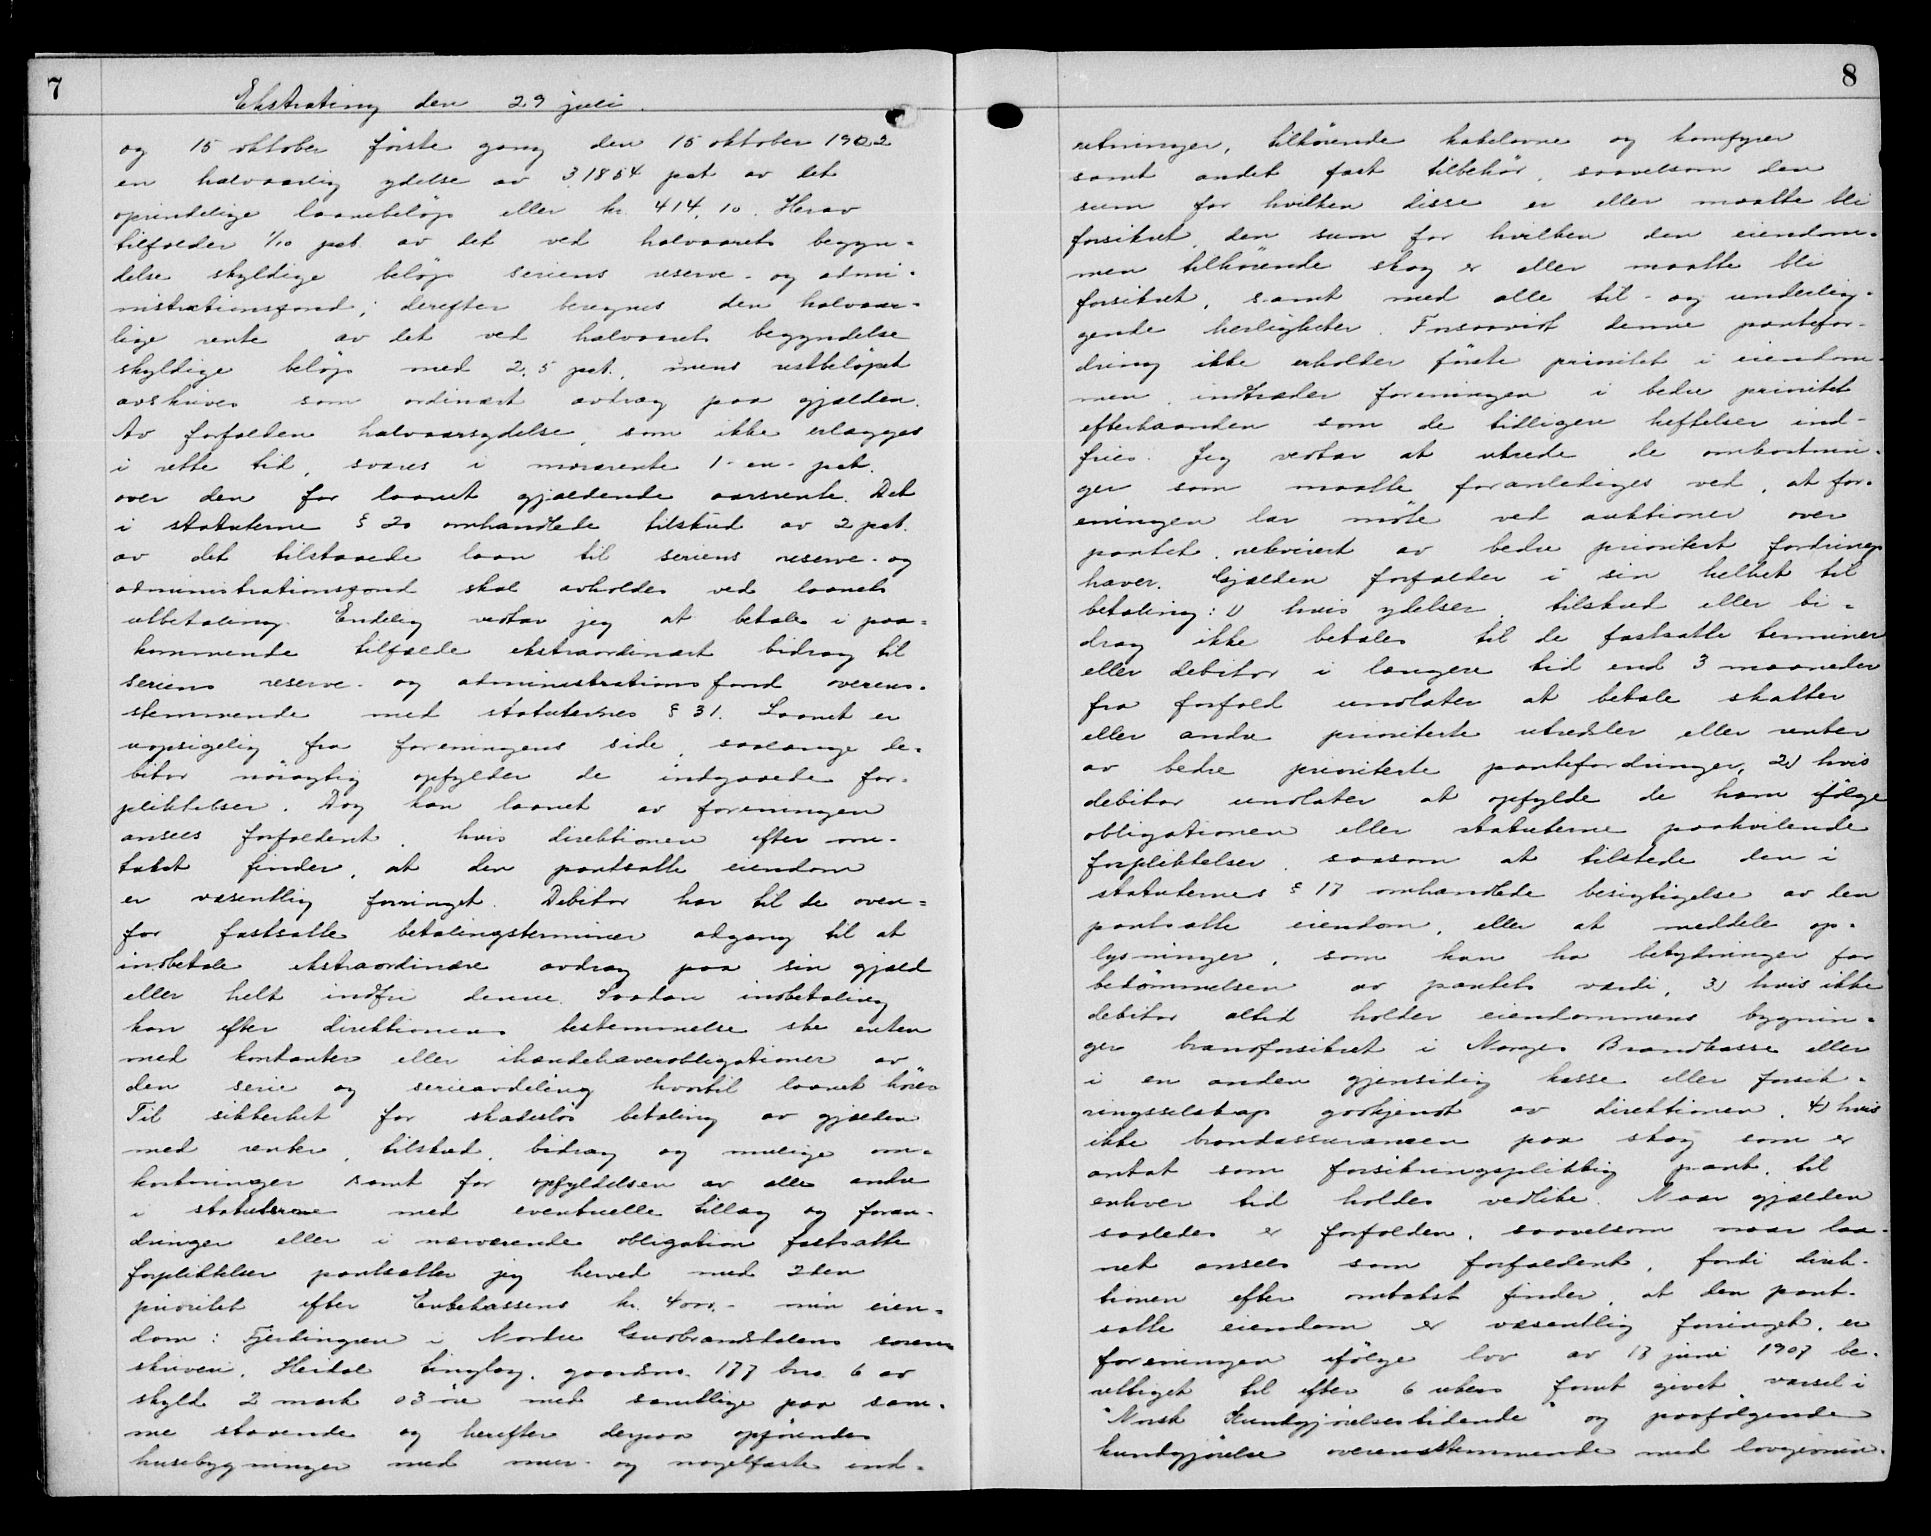 7
Ekstrating den 29 juli.
og 15 oktober første gang den 15 oktober 1922
en halvaarlig ydelse av 3.1854 pct av det
oprindelige laanebeløp eller kr. 414,10. Herav
tilfalder 1/10 pct. av det ved halvaarets begyn-
delse skyldige beløp seriens reserve- og admi-
nistrationsfond; derefter beregnes den halvaar-
lige rente av det ved halvaarets begyndelse
skyldige beløp med 2,5 pct., mens restbeløpet
avskrives som ordinært avdrag paa gjælden.
Av forfalden halvaarsydelse, som ikke erlægges
i rette tid, svares i morarente 1-en-pct.
over den for laanet gjældende aarsrente. Det
i statuterne § 20 omhandlede tilskud av 2 pct.
av det tilstaaede laan til seriens reserve- og
administrationsfond skal avholdes ved laanets
utbetaling. Endelig vedtar jeg at betale i paa-
kommende tilfælde ekstraordinært bidrag til
seriens reserve- og administrationsfond overens-
stemmende med statuternes § 31. Laanet er
uopsigelig fra foreningens side, saalænge de-
bitor nøiagtig opfylder de indgaaede for-
pliktelser. Dog kan laanet av foreningen
ansees forfaldent, hvis direktionen efter om-
takst finder, at den pantsatte eiendom
er væsentlig forringet. Debitor har til de oven-
for fastsatte betalingsterminer adgang til at
indbetale ekstraordinære avdrag paa sin gjæld
eller helt indfri denne. Saadan indbetaling
kan efter direktionens bestemmelse ske enten
med kontanter eller ihændehaverobligationer av
den serie og serieavdeling hvortil laanet hører
Til sikkerhet for skadesløs betaling av gjælden
med renter, tilskud, bidrag og mulige om-
kostninger samt for opfyldelsen av alle andre
i statuterne med eventuelle tillæg og foran-
dringer eller i nærværende obligation fastsatte
forpliktelser pantsætter jeg herved med 2den
prioritet efter Enkekassens kr. 4000.- min eien-
dom: Fjerdingren i Nordre Gudbrandsdalens soren-
skriveri, Heidal tinglag, gaardsno. 177 bno. 6 av
skyld 2 mark 03 øre med samtlige paa sam-
me staaende og herefter derpaa opførendes
husebygninger med mur- og nagelfaste ind-
8
retninger, tilhørende kakelovne og komfyrer
samt andet fast tilbehør, saavelsom den
sum for hvilken disse er eller maatte bli
forsikret, den sum for hvilken den eiendom-
men tilhørende skog er eller maatte bli
forsikret, samt med alle til- og underlig-
gende herligheter. Forsaavidt denne pantefor-
dring ikke erholder første prioritet i eiendom-
men, indtræder foreningen i bedre prioritet
efterhaanden som de tidligere heftelser ind-
fries. Jeg vedtar at utrede de omkostnin-
ger som maatte foranlediges ved, at for-
eningen lar møte ved auktioner over
pantet, rekvirert av bedre prioritert fordrings-
haver. Gjælden forfalder i sin helhet til
betaling: 1) hvis ydelser, tilskud eller bi-
drag ikke betales til de fastsatte terminer
eller debitor i længere tid end 3 maaneder
fra forfald undlater at betale skatter
eller andre prioriterte utredsler eller renter
av bedre prioriterte pantefordringer, 2) hvis
debitor undlater at opfylde de ham ifølge
obligationen eller statuterne paahvilende
forpliktelser, saasom at tilstede den i
statuternes § 17 omhandlede besigtigelse av den
pantsatte eiendom, eller at meddele op-
lysninger, som kan ha betydninger for
bedømmelsen av pantets værdi, 3) hvis ikke
debitor altid holder eiendommens bygnin-
ger brandforsikret i Norges Brandkasse eller
i en anden gjensidig kasse eller forsik-
ringsselskap godkjendt av direktionen, 4) hvis
ikke brandassurancen paa skog som er
antat som forsikringspliktig pant, til
enhver tid holdes vedlike. Naar gjælden
saaledes er forfalden, saavelsom naar laa-
net ansees som forfaldent, fordi direk-
tionen efter omtakst finder, at den pant-
satte eiendom er væsentlig forringet, er
foreningen ifølge lov av 13 juni 1907 be-
rettiget til efter 6 ukers forut givet varsel i
"Norsk Kundgjørelsestidende" og paafølgende
kundgjørelse overensstemmende med lovgivnin-